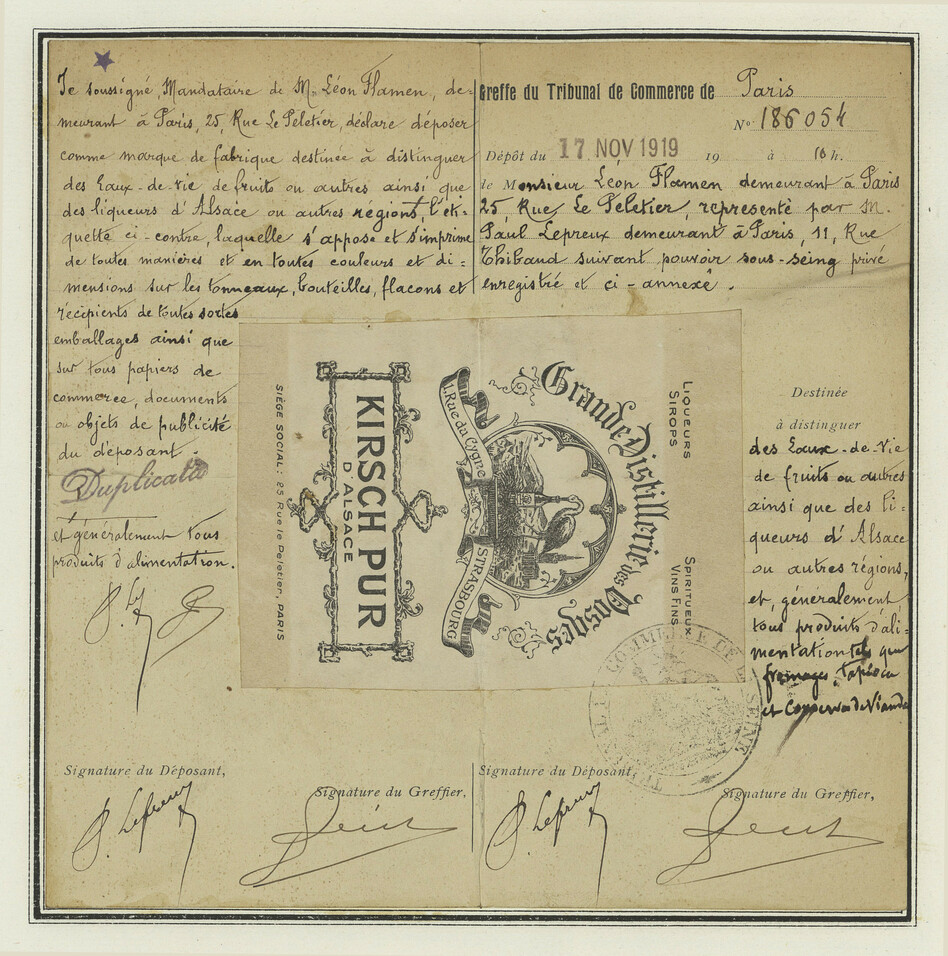 Je soussigné, Mandataire de M. Léon Flamen, de-
meurant à Paris, 25, Rue Le Peletier, déclare déposer
comme marque de fabrique destinée à distinguer
des Eaux-de-Vie de fruits ou autres ainsi que
des liqueurs d'Alsace ou autres régions, l'éti-
quette ci-contre, laquelle s'appose et s'imprime
de toutes manières et en toutes couleurs et di-
mensions sur les tonneaux, bouteilles, flacons et
récipients de toutes sortes
emballages ainsi que
sur tous papiers de
commerce, documents
ou objets de publicité
du déposant.
Duplicata
et généralement tous
produits d'alimentation.
Greffe du Tribunal de Commerce de Paris
No 186054
Dépôt du 17 NOV 1919 19 à 10 h.
de Monsieur Léon Flamen demeurant à Paris
25, Rue Le Peletier, représenté par M.
Paul Lepreux demeurant à Paris, 11, Rue
Thibaud suivant pouvoir sous-seing privé
enregistré et ci-annexé.
LIQUEURS
SIROPS
SPIRITUEUX
VINS FINS
Grande Distillerie des Vosges
1, Rue du Cygne STRASBOURG
KIRSCH PUR
D'ALSACE
SIÈGE SOCIAL: 25 Rue le Peletier, PARIS
Destinée
à distinguer
des Eaux-de-Vie
de fruits ou autres
ainsi que des li-
queurs d'Alsace
ou autres régions,
et, généralement
tous produits d'ali-
mentation tels que
fromages, tapioca
et Conserves de Viande
COMMERCE DE SEINE
Signature du Déposant,
Signature du Greffier,
P. Lepreux
Signature du Déposant,
Signature du Greffier,
P. Lepreux